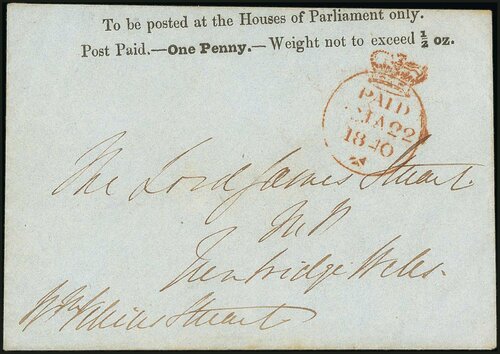 To be posted at the Houses of Parliament only.
Post Paid.—One Penny.—Weight not to exceed ½ oz.
PAID
JA 22
1840
The Lord James Stuart
M P
Tunbridge Wells
Stuart